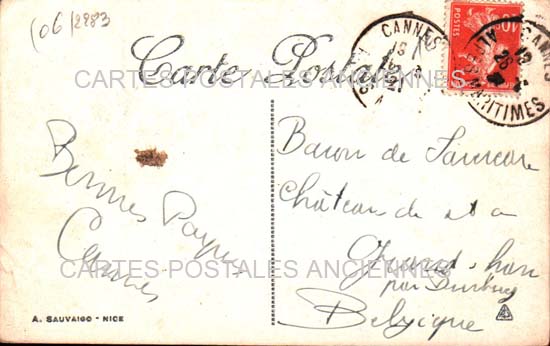 (06/2883
Carte Postale
CANNES
ALPES MARITIMES
POSTES
10
CARTES POSTALES ANCIENNES
Bonnes Pâques
Cannes
Baron de
Château de
Grand-han
par Durbuy
Belgique
CARTES POSTALES ANCIENNES
A. SAUVAIGO - NICE